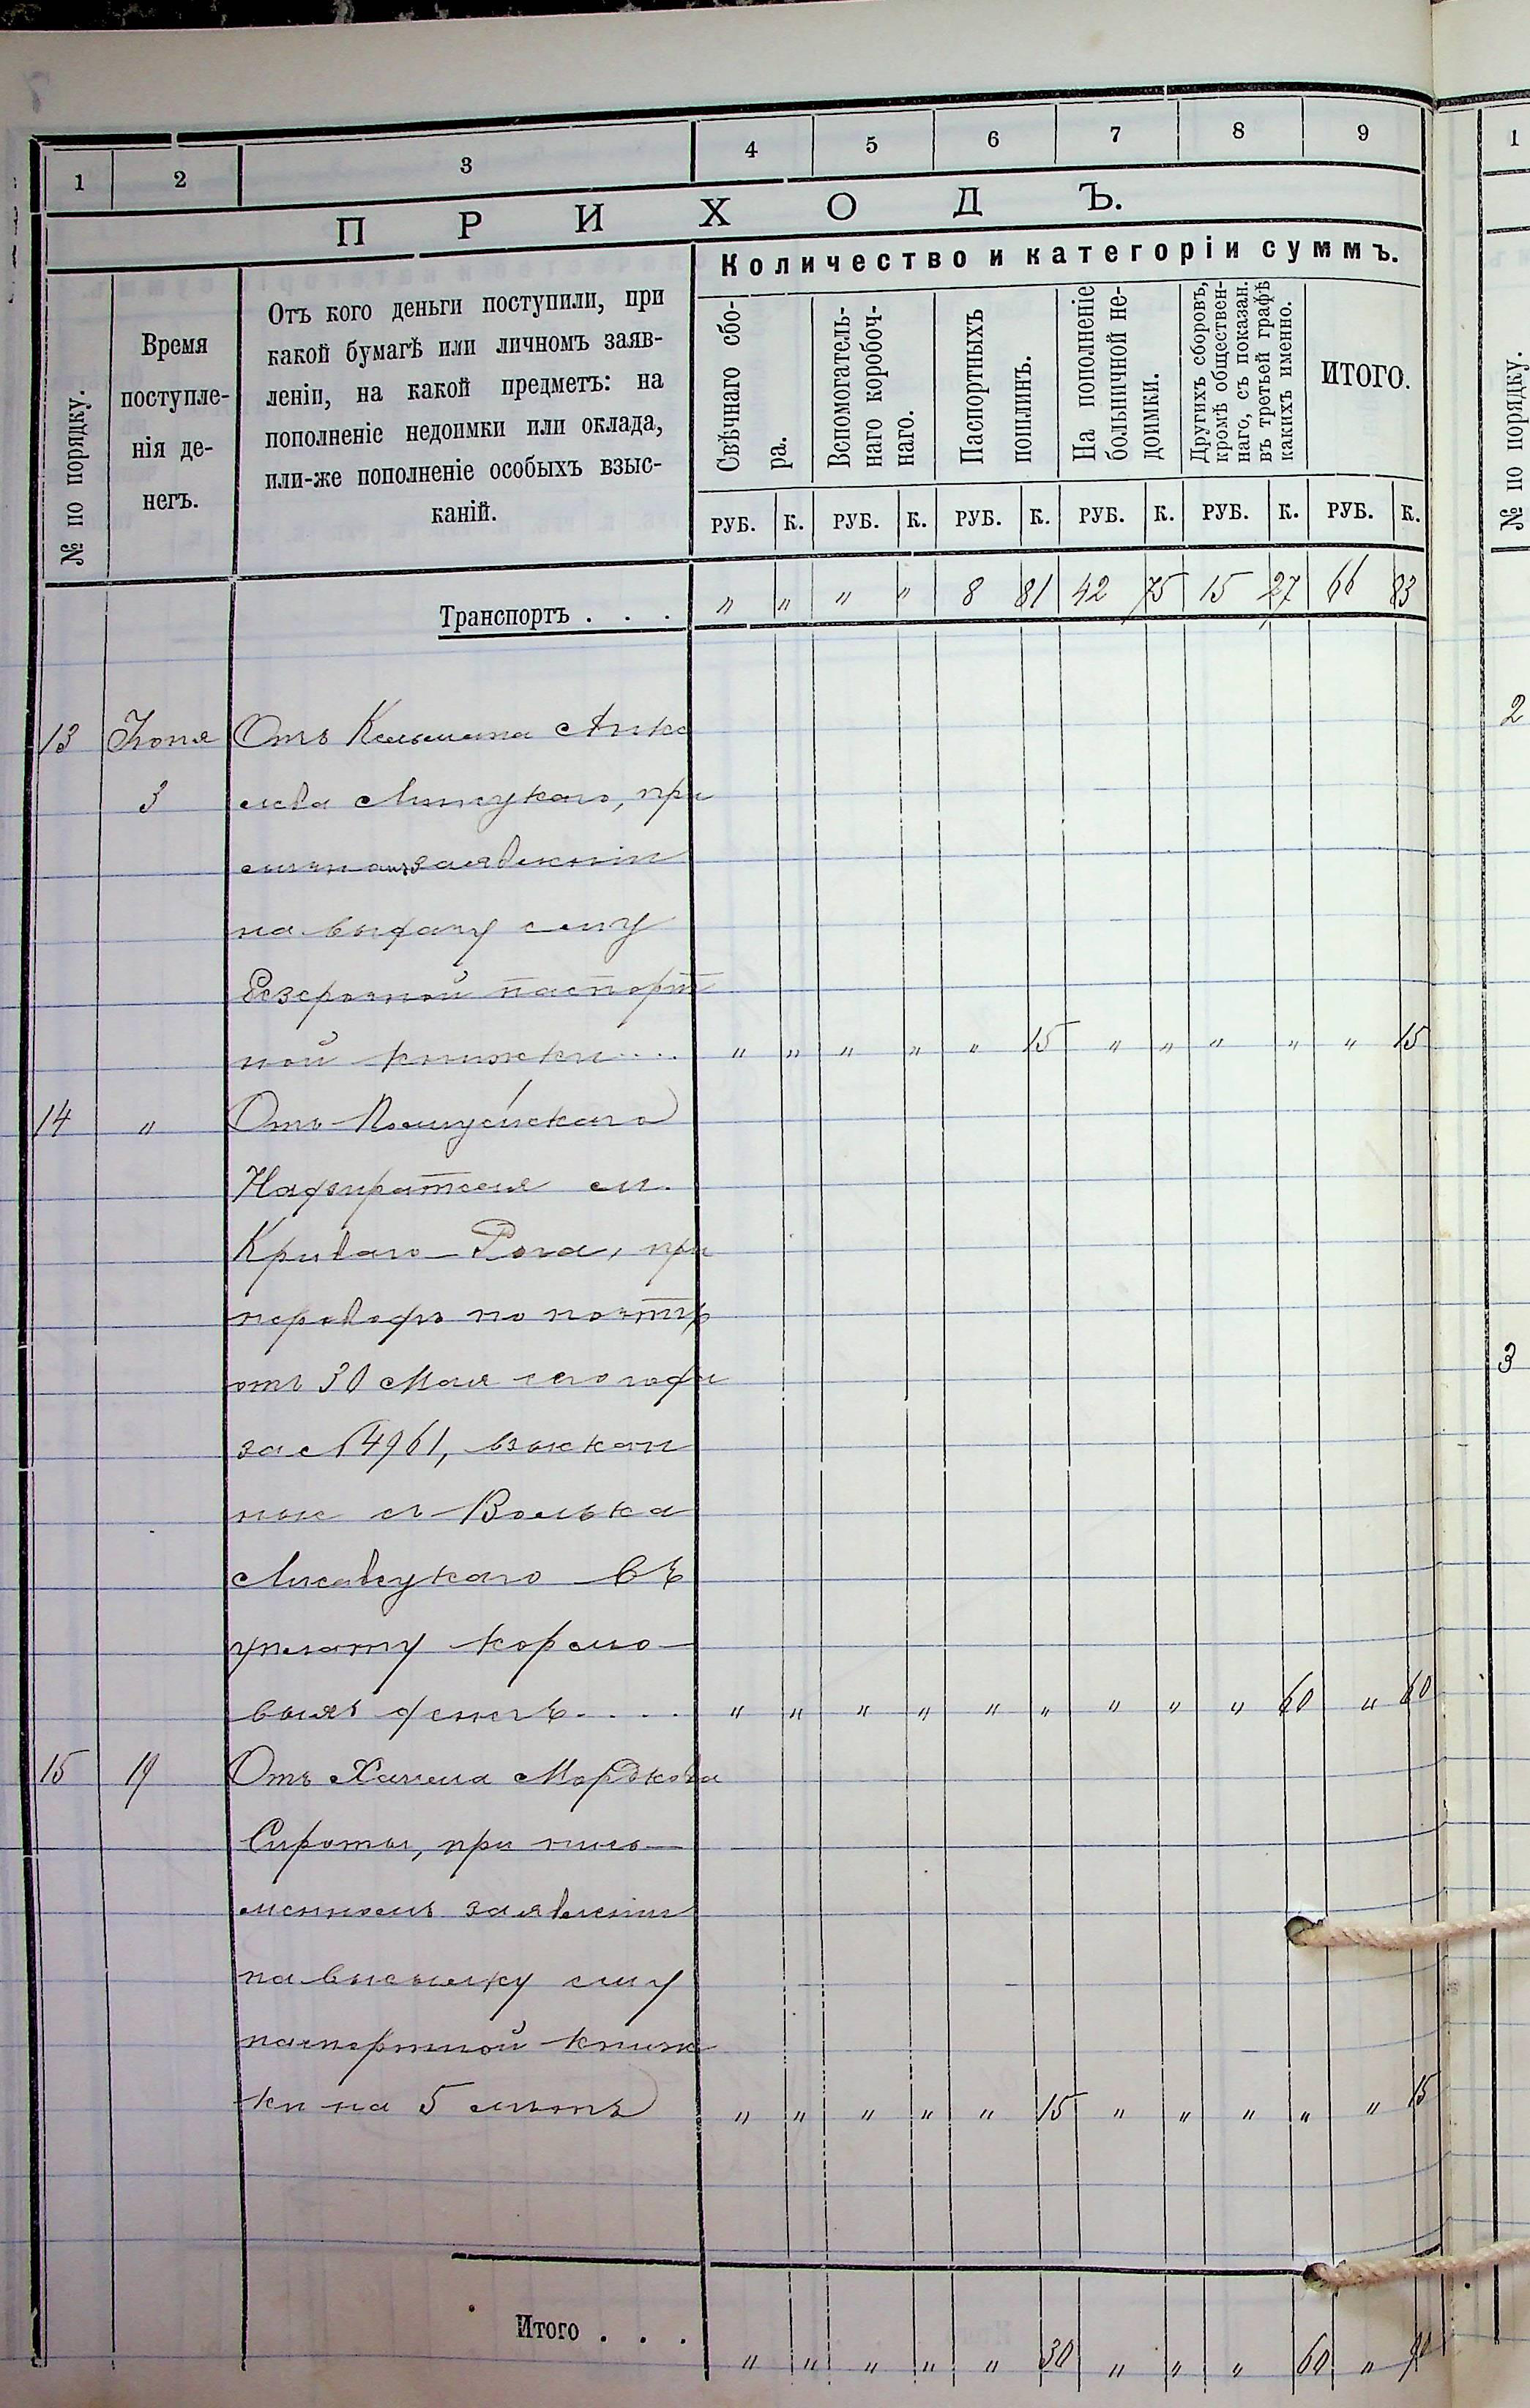 1 2 3 4 5 6 7 8 9
П Р И Х О Д Ъ.
Количество и категоріи суммъ.
№ по порядку.
Время
поступле-
нія де-
негъ.
Отъ кого деньги поступили, при
какой бумагѣ или личномъ заяв-
леніи, на какой предметъ: на
пополненіе недоимки или оклада,
или-же пополненіе особыхъ взыс-
каній.
Свѣчнаго сбо-
ра.
Вспомогатель-
наго коробоч-
наго.
Паспортныхъ
пошлинъ.
На пополненіе
больничной не-
доимки.
Другихъ сборовъ,
кромѣ обществен-
наго, съ показан.
въ третьей графѣ
какихъ именно.
ИТОГО.
РУБ. К. РУБ. К. РУБ. К. РУБ. К. РУБ. К. РУБ. К.
Транспортъ . . . " " " " 8 81 42 75 15 27 66 83
13 Іюня Отъ Кельмана
3 при
заявленіи
на выдачу ему
безсрочной паспорт
ной книжки .... " " " " " 15 " " " " " 15
14 " Отъ Полицейскаго
Надзирателя м.
Криваго-Рога, при
переводѣ по почтѣ
отъ 30 Мая сего года
за № 4961, взыскан
ные съ Волька
въ
уплату кормо-
выхъ денегъ .... " " " " " " " " " 60 " 60
15 19 Отъ Хаима Мордкова
Сироты, при пись-
менномъ заявленіи
на высылку ему
паспортной книж
ки на 5 лѣтъ " " " " " 15 " " " " " 15
Итого . . . " " " " " 30 " " " 60 " 90
1
№ по порядку.
2
3